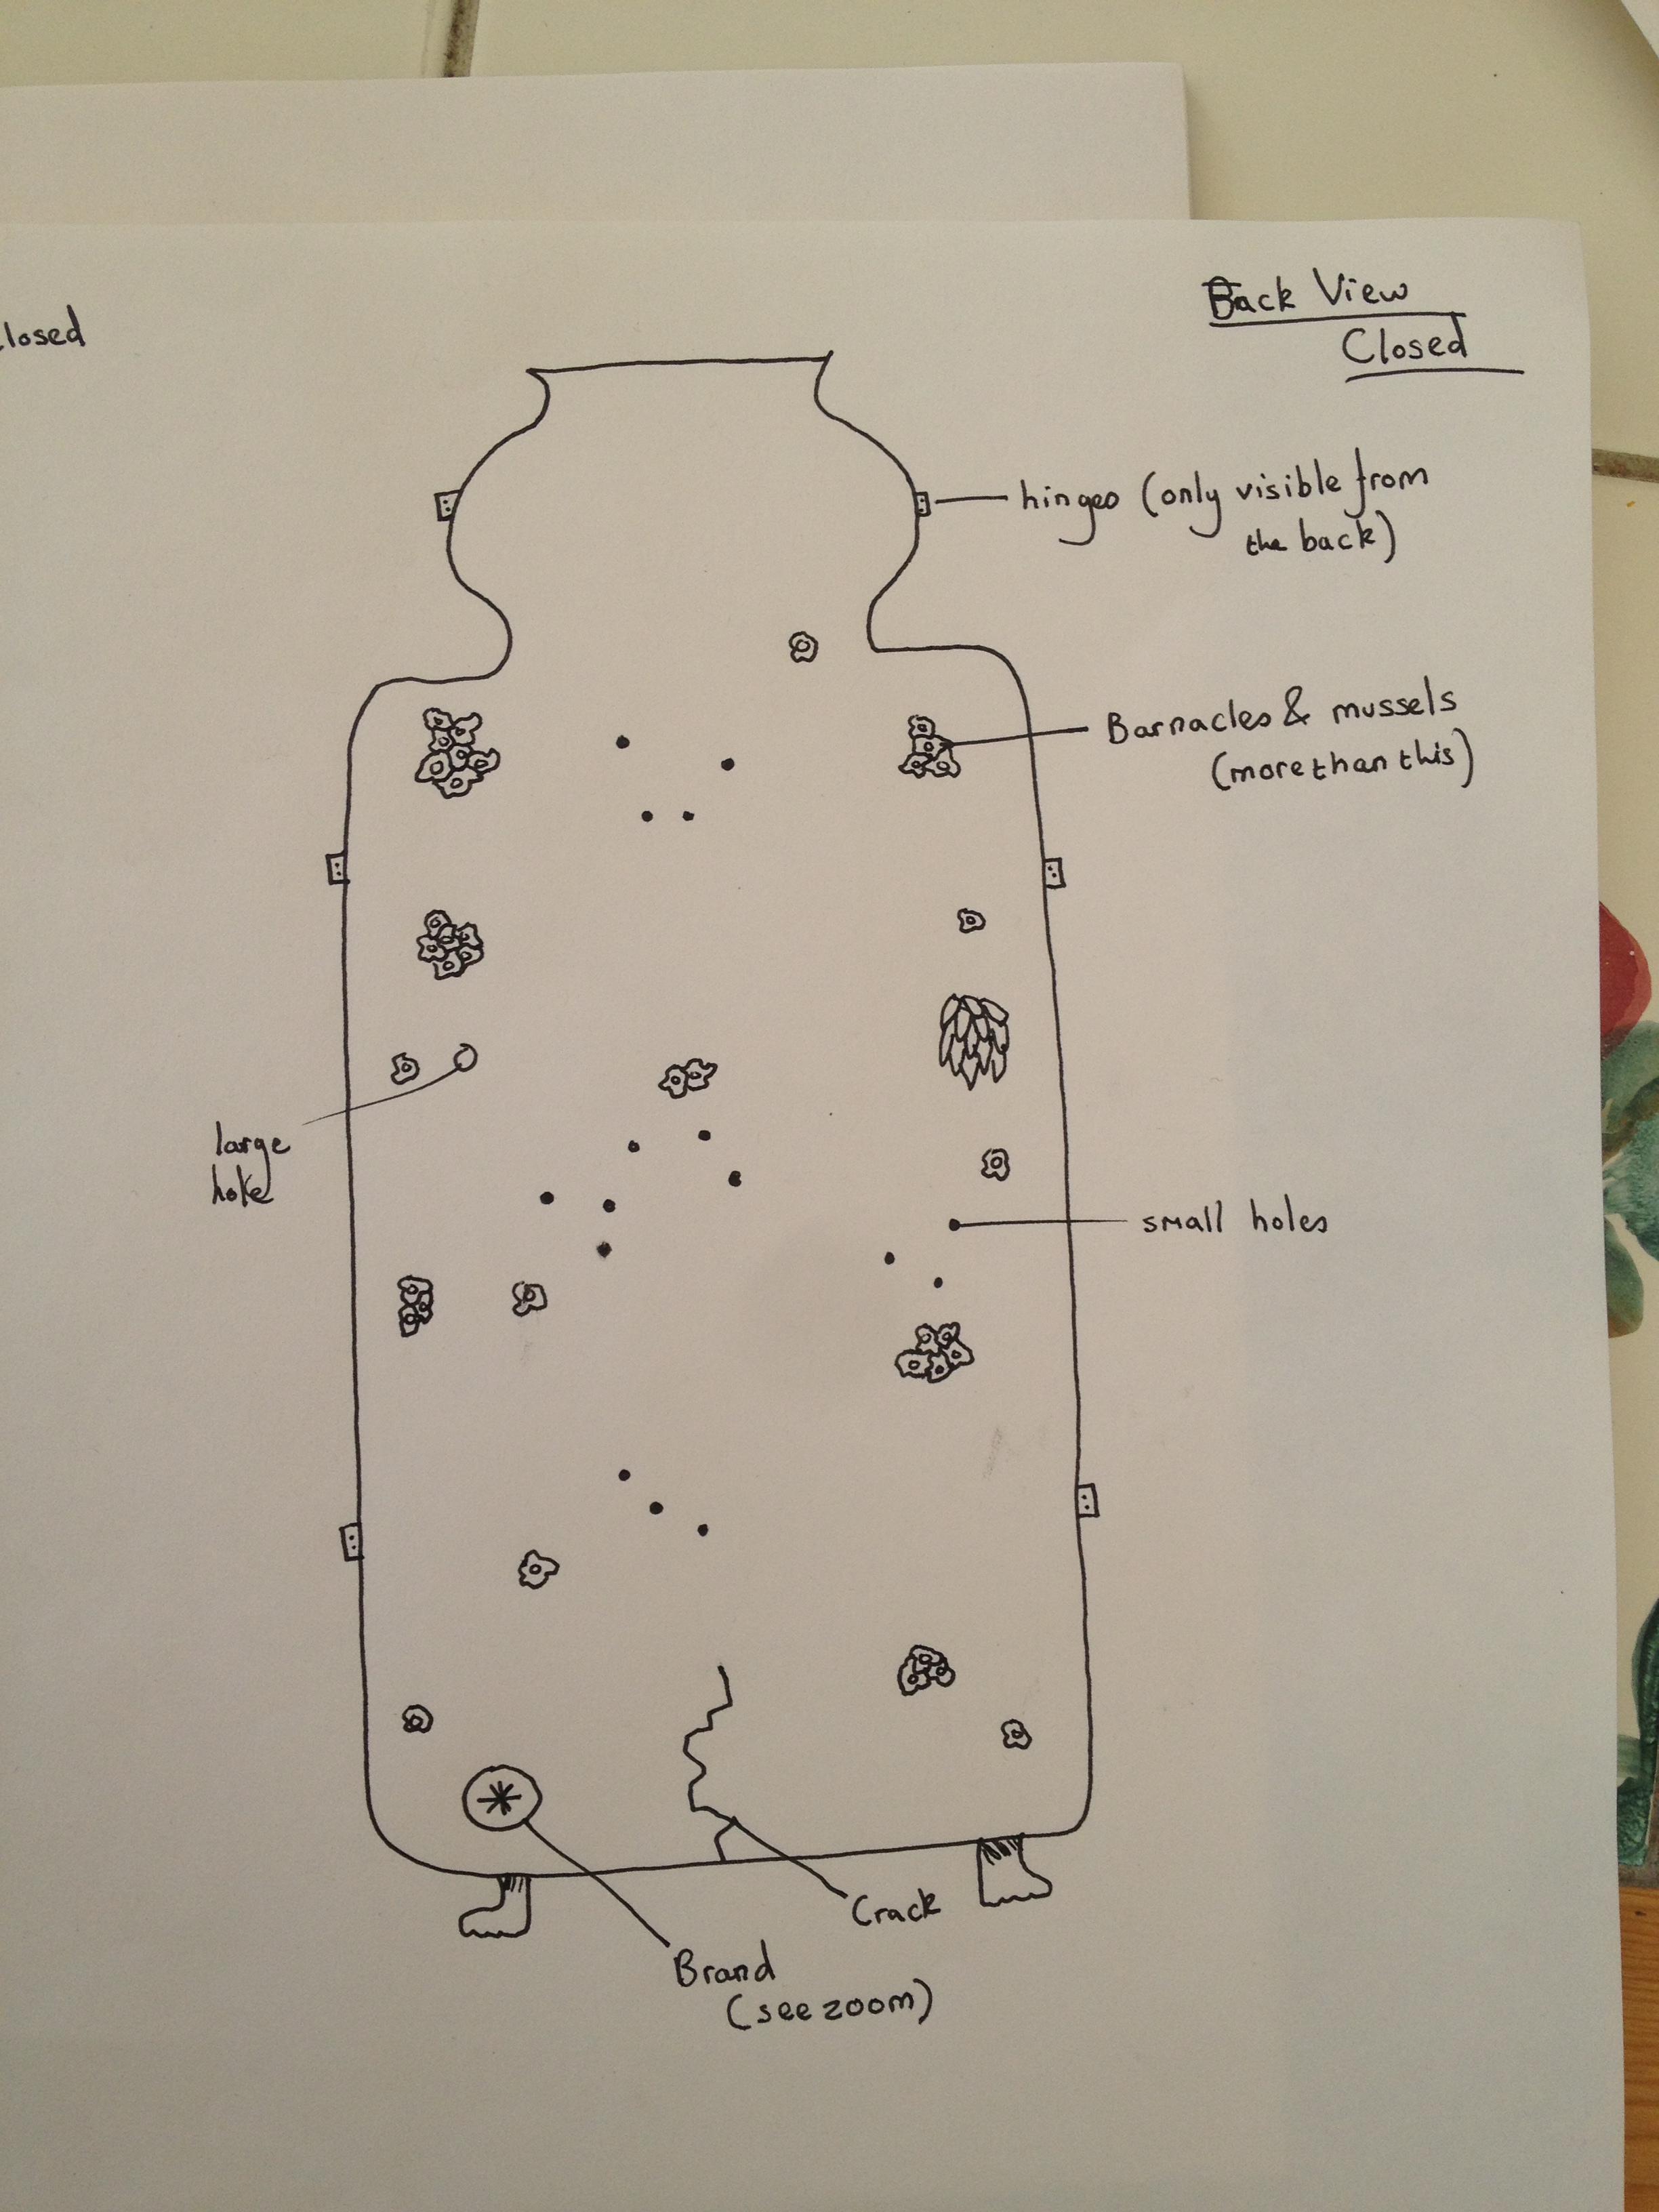 closed
Back View
Closed
hinges (only visible from
the back)
Barnacles & mussels
(more than this)
large
hole
small holes
Crack
Brand
(see zoom)